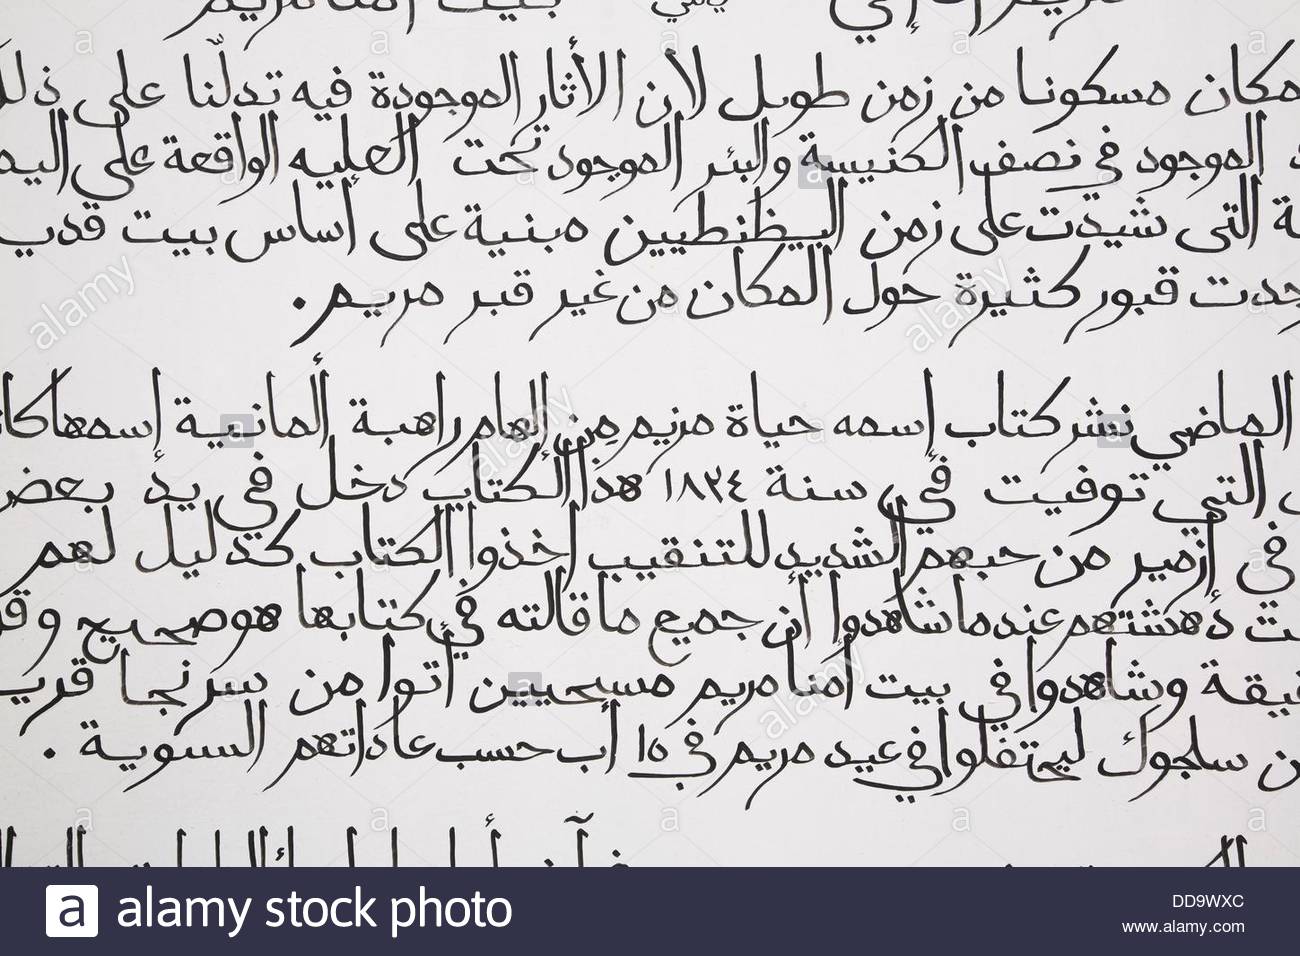 بيت أمنا مريم
مكان مسكونا من زمن طويل لان الأثار الموجودة فيه تدلّنا على ذلك
الموجود في نصف الكنيسة والبئر الموجود تحت العليه الواقعة على
التى شيدت على زمن البيظنطيين مبنية على أساس بيت
قبور كثيرة حول المكان من غير قبر مريم .
الماضي نشر كتاب إسمه حياة مريم من إلهام راهبة ألمانية إسمها
التي توفيت في سنة ١٨٢٤ هذا الكتاب دخل في يد بعض
في أزمير من حبهم الشديد للتنقيب أخذوا الكتاب كدليل لهم
دهشتهم عندما شاهدوا أن جميع ما قالته في كتابها هو صحيح
وشاهدوا في بيت أمنا مريم مسيحيين أتوا من سرنجا
سلجوك ليحتفلوا في عيد مريم في ١٥ أب حسب عاداتهم السنوية .
alamy
a alamy stock photo
DD9WXC
www.alamy.com